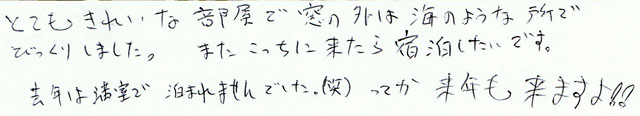 とてもきれいな部屋で窓の外は海のような所で
びっくりしました。 またこっちに来たら宿泊したいです。
去年は満室で泊まれませんでした。(笑) ってか来年も来ますよ!!